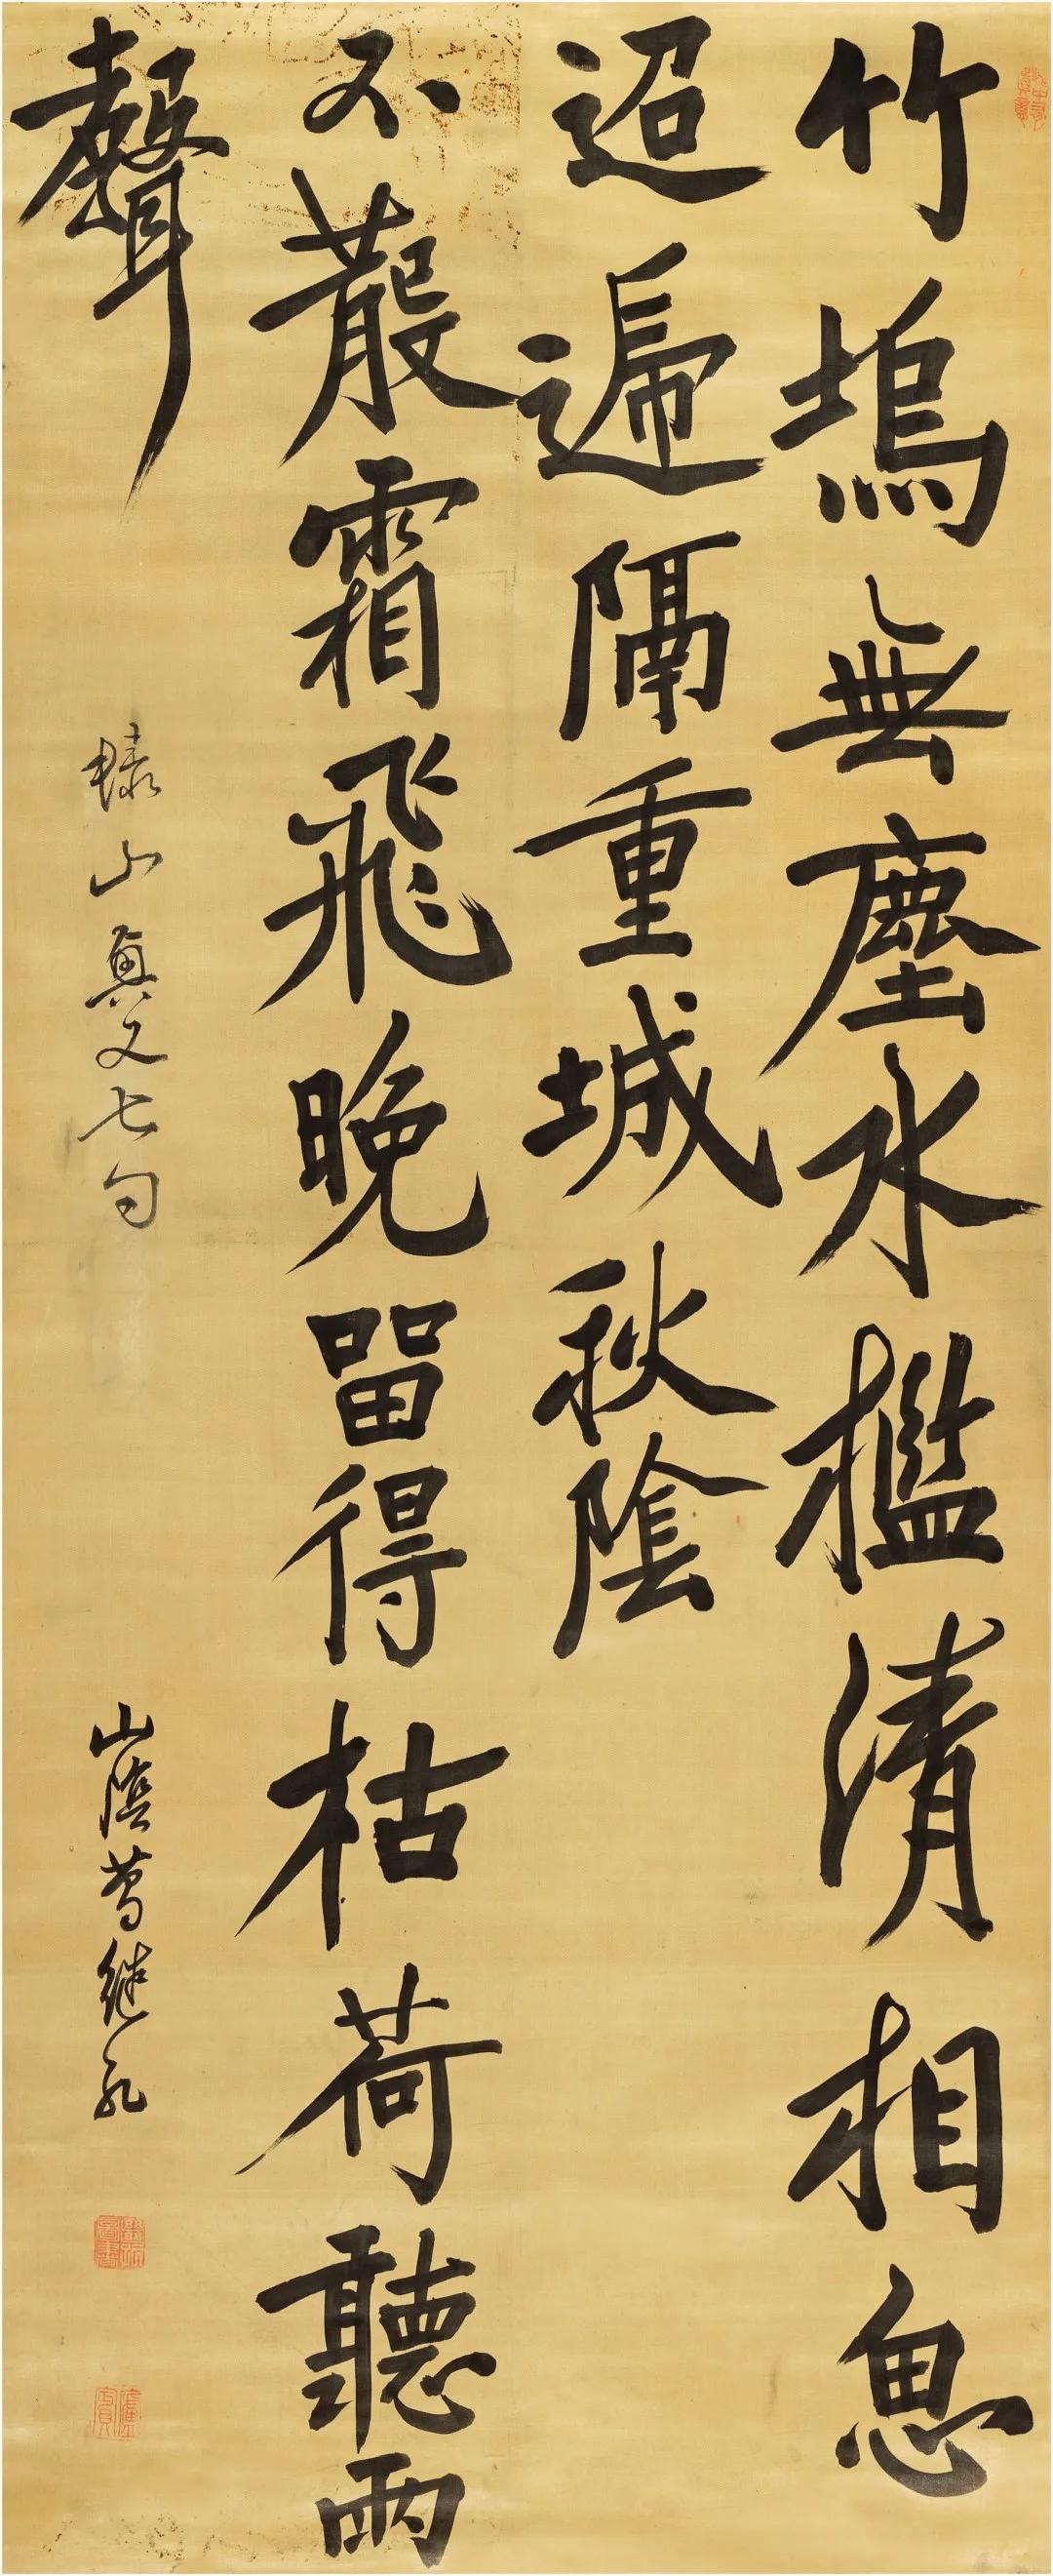 竹塢無塵水檻清相思
迢遞隔重城秋陰
不散霜飛晚留得枯荷聽雨
聲
山 七句
山陰葛繼孔